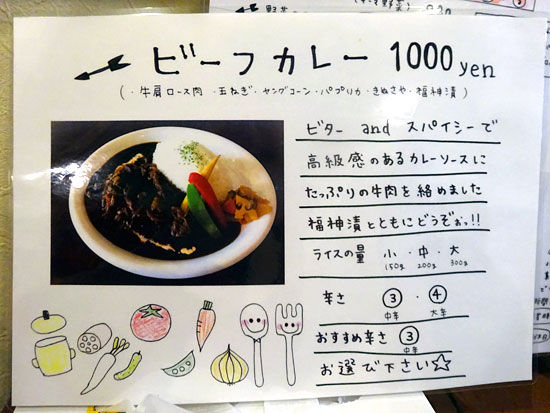 ビーフカレー 1000 yen
(・牛肩ロース肉 ・玉ねぎ・ヤングコーン・パプリカ・きぬさや・福神漬)
ビター and スパイシーで
高級感のあるカレーソースに
たっぷりの牛肉を絡めました
福神漬とともにどうぞぉっ!!
ライスの量 小・中・大
150g 200g 300g
辛さ ③・④
中辛 大辛
おすすめ辛さ ③
中辛
お選び下さい☆